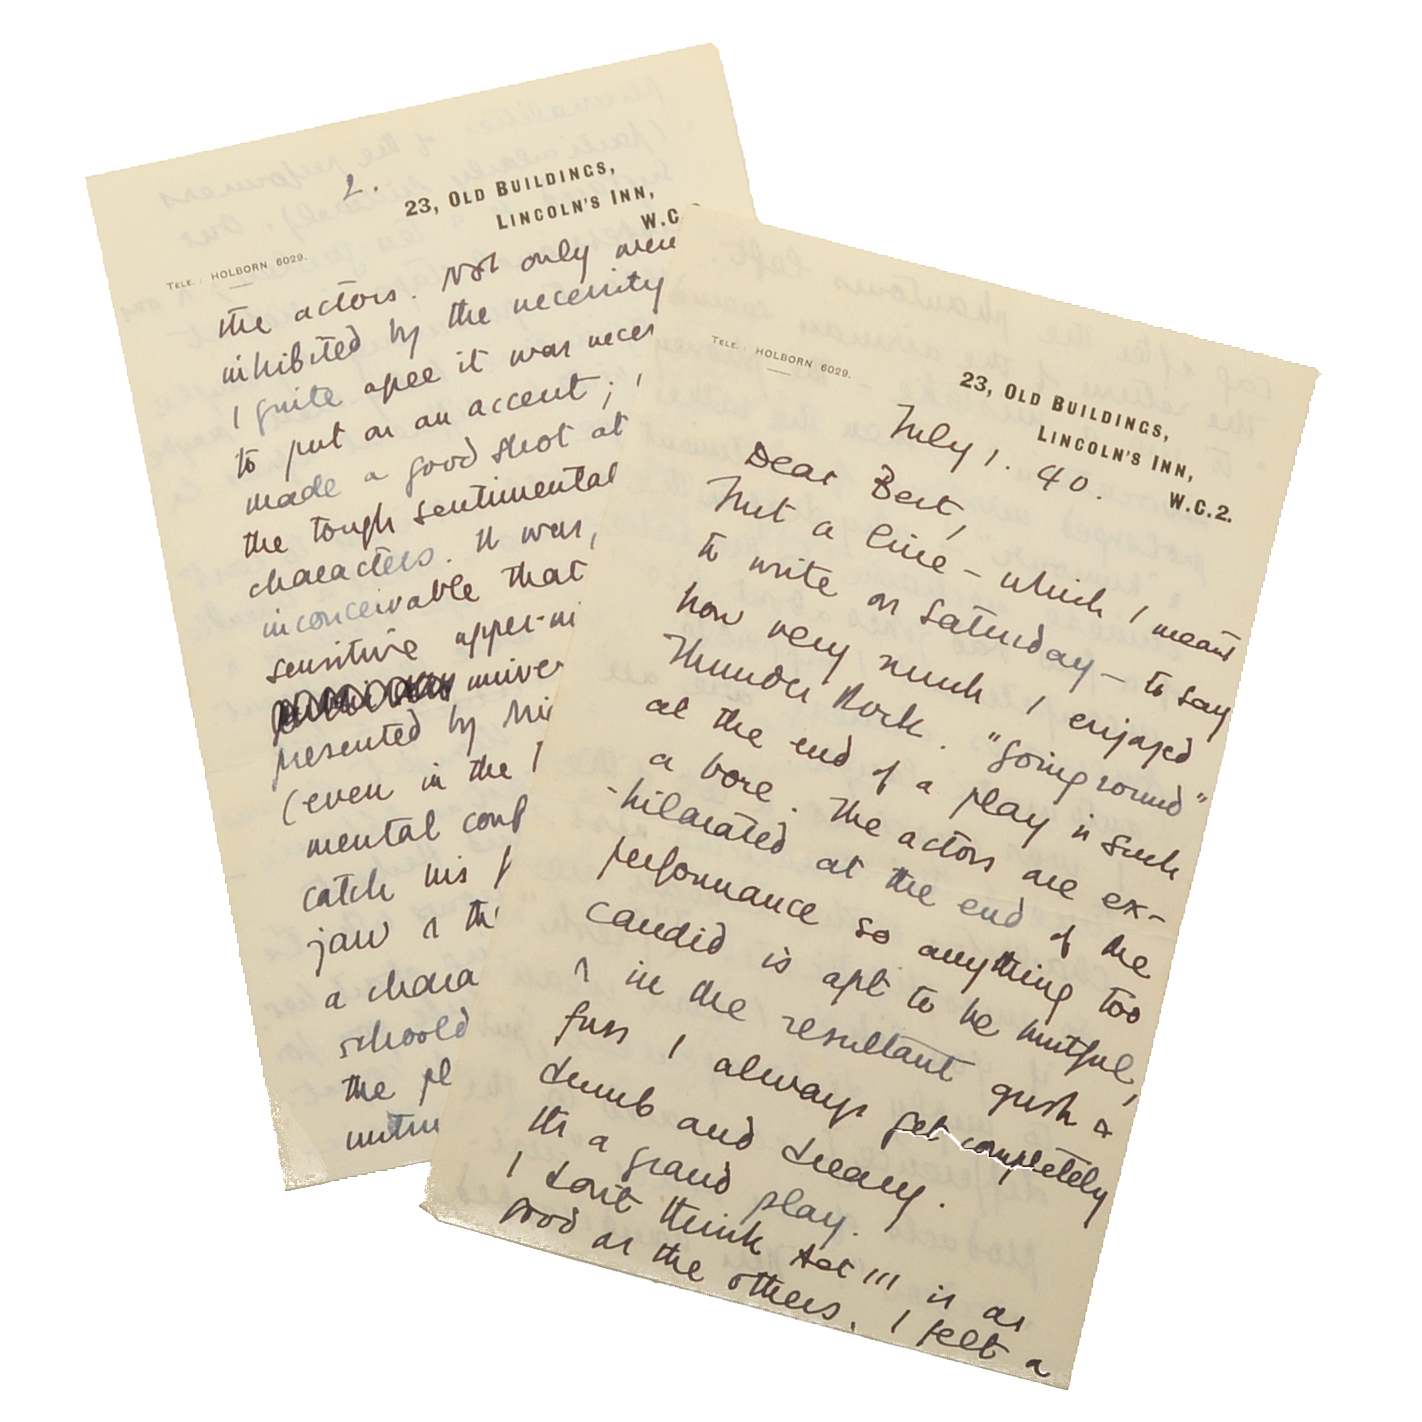 TELE.: HOLBORN 6029.
23, OLD BUILDINGS,
LINCOLN'S INN,
W.C.2.
July 1. 40.
Dear Bert,
Just a line – which I meant
to write on Saturday – to say
how very much I enjoyed
Thunder Rock. "Going round"
at the end of a play is such
a bore. The actors are ex-
-hilarated at the end of the
performance so anything too
candid is apt to be hurtful,
& in the resultant gush &
fuss I always get completely
dumb and dreary.
It's a grand play.
I don't think Act III is as
good as the others. I felt a
2.
TELE.: HOLBORN 6029.
23, OLD BUILDINGS,
LINCOLN'S INN,
W.C.
the actors. Not only were
inhibited by the necessity
I quite agree it was neces
to put on an accent;
made a good shot at
the tough sentimental
characters. It was,
inconceivable that
sensitive upper-mi
univer
presented by
(even in the
mental conf
catch his
jaw & th
a chara
schoold
the pl